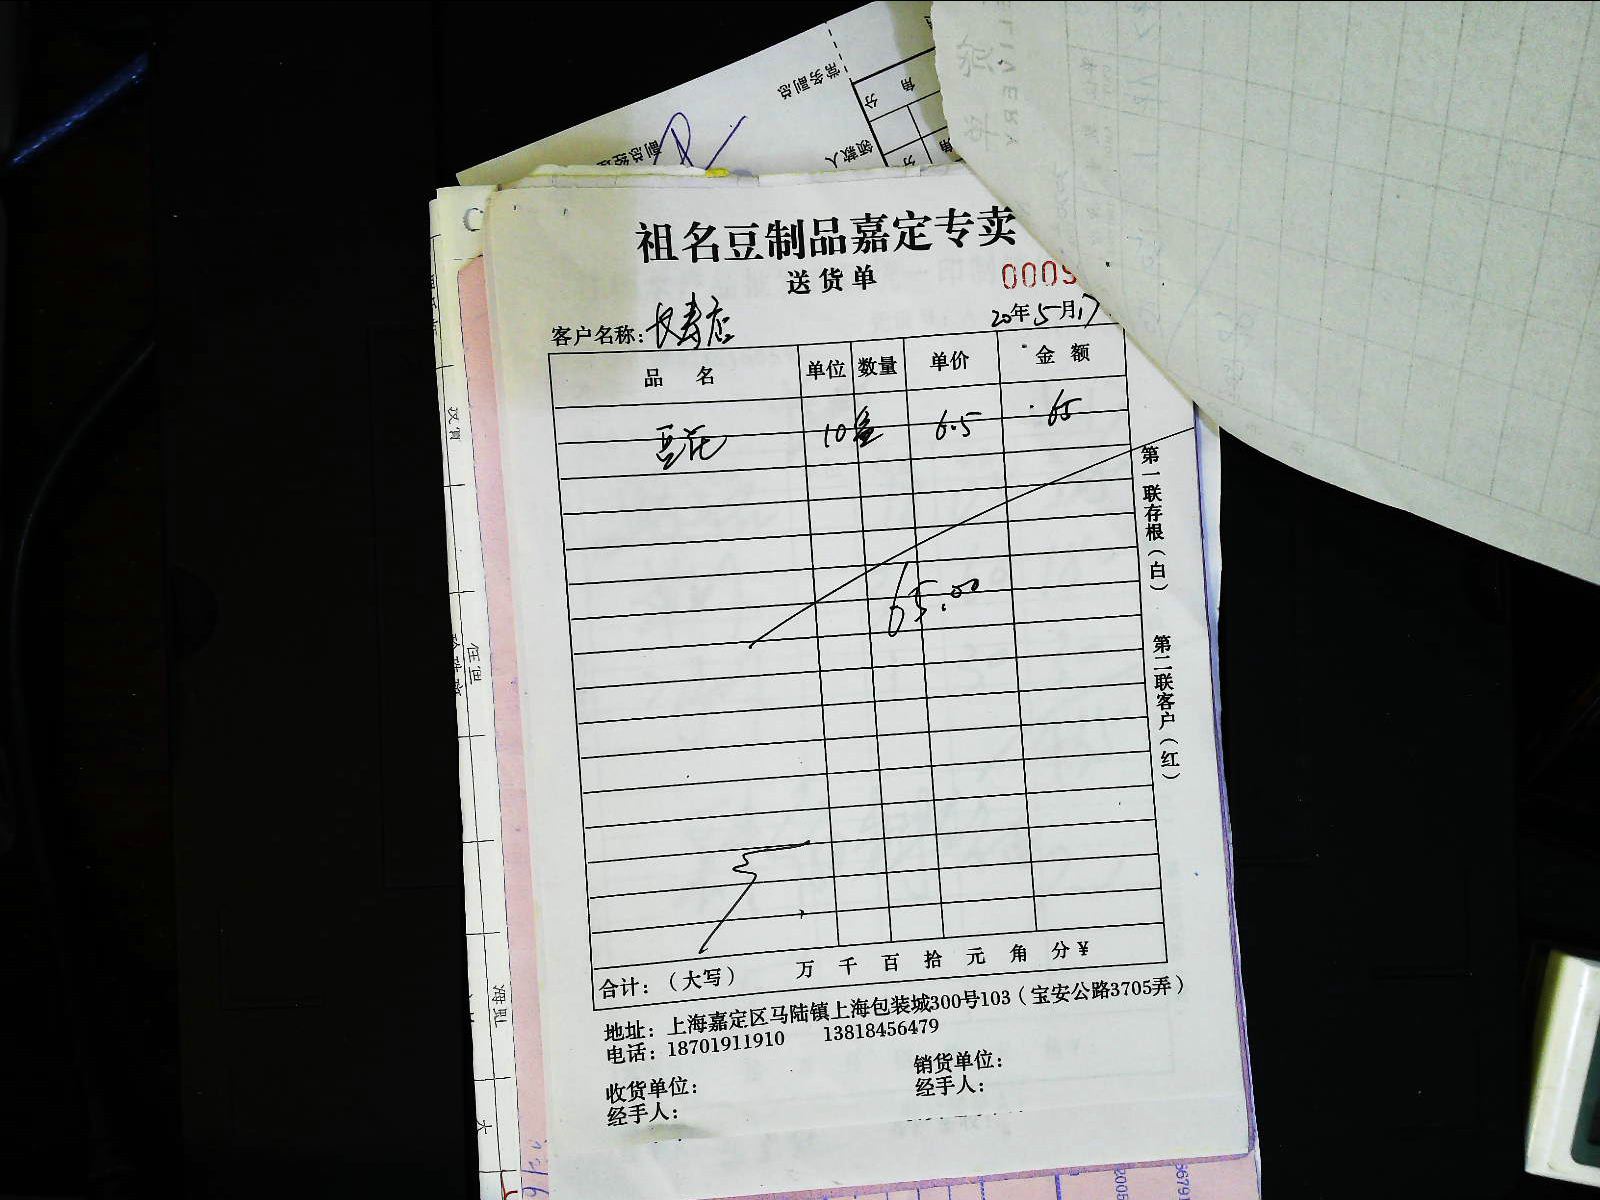 常务副总
角
分
领款人
角
分
副总经理
祖名豆制品嘉定专卖
送货单
0009
客户名称：长寿店
20年5月17
品 名 单位 数量 单价 金 额
豆花 10盒 6.5 65
65.00
第一联存根（白）
第二联客户（红）
合计：（大写） 万 千 百 拾 元 角 分 ¥
地址：上海嘉定区马陆镇上海包装城300号103（宝安公路3705弄）
电话：18701911910 13818456479
收货单位： 销货单位：
经手人： 经手人：